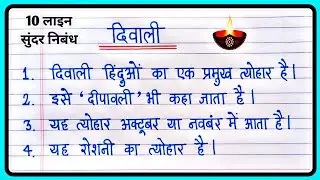 10 लाइन
सुंदर निबंध
दिवाली
1. दिवाली हिंदुओं का एक प्रमुख त्योहार है।
2. इसे 'दीपावली' भी कहा जाता है।
3. यह त्योहार अक्टूबर या नवंबर में आता है।
4. यह रोशनी का त्योहार है।